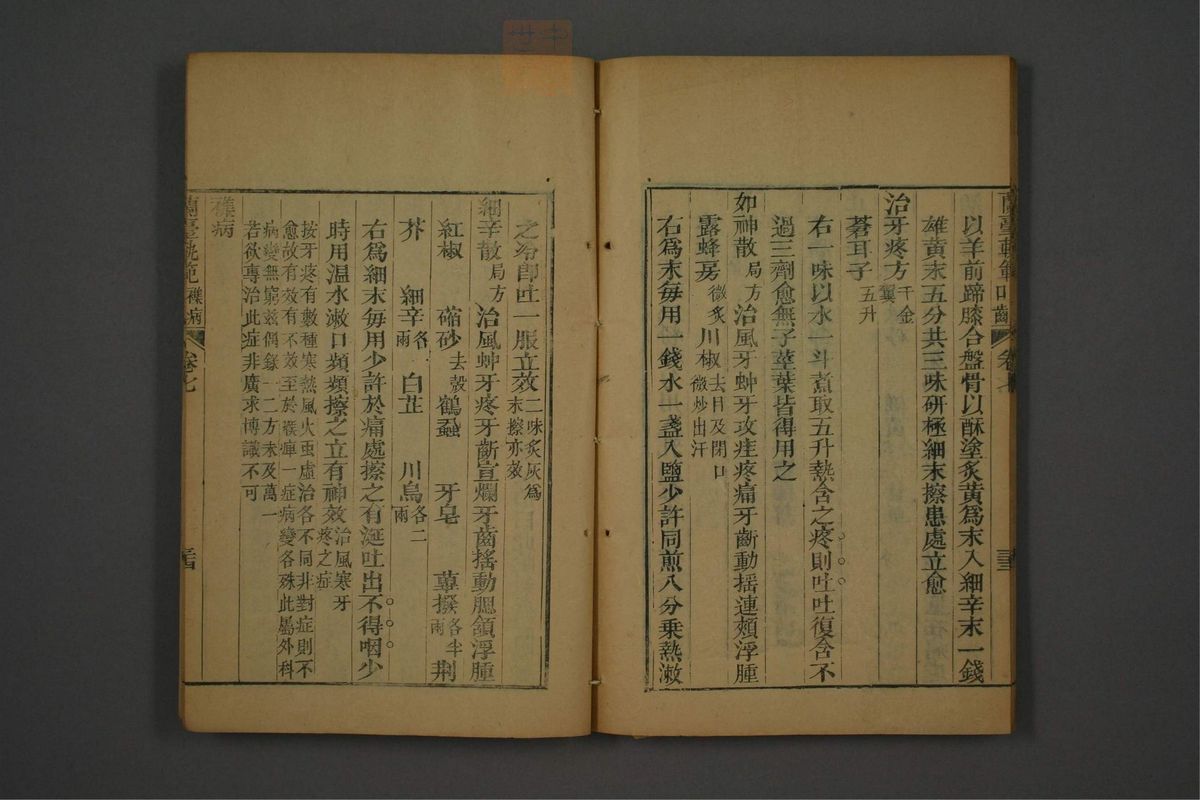 蘭臺軌範 口齒 卷七 三三
以羊前蹄膝合盤骨以酥塗炙黃為末入細辛末一錢
雄黃末五分共三味研極細末擦患處立愈
治牙疼方 千金翼
蒼耳子 五升
右一味以水一斗煮取五升熱含之疼則吐吐復含不
過三劑愈無子莖葉皆得用之
如神散 局方 治風牙蚛牙攻疰疼痛牙齗動搖連頰浮腫
露蜂房 微炙 川椒 去目及閉口微炒出汗
右為末每用一錢水一盞入鹽少許同煎八分乗熱漱
之冷即吐一服立效 二味炙灰為末擦亦效
細辛散 局方 治風蚛牙疼牙齗宣爛牙齒搖動腮頷浮腫
紅椒 縮砂 去殼 鶴蝨 牙皂 蓽撥 各半兩 荆
芥 細辛 各兩 白芷 川烏 各二兩
右為細末每用少許於痛處擦之有涎吐出不得咽少
時用温水漱口頻頻擦之立有神效 治風寒牙疼之症
按牙疼有數種寒熱風火虫虛治各不同非對症則不
愈故有效有不效至於喉痺一症病變各殊此屬外科
病變無窮兹偶錄一二方未及萬一
若欲專治此症非廣求博識不可
襍病
蘭臺軌範 襍病 卷七 三四